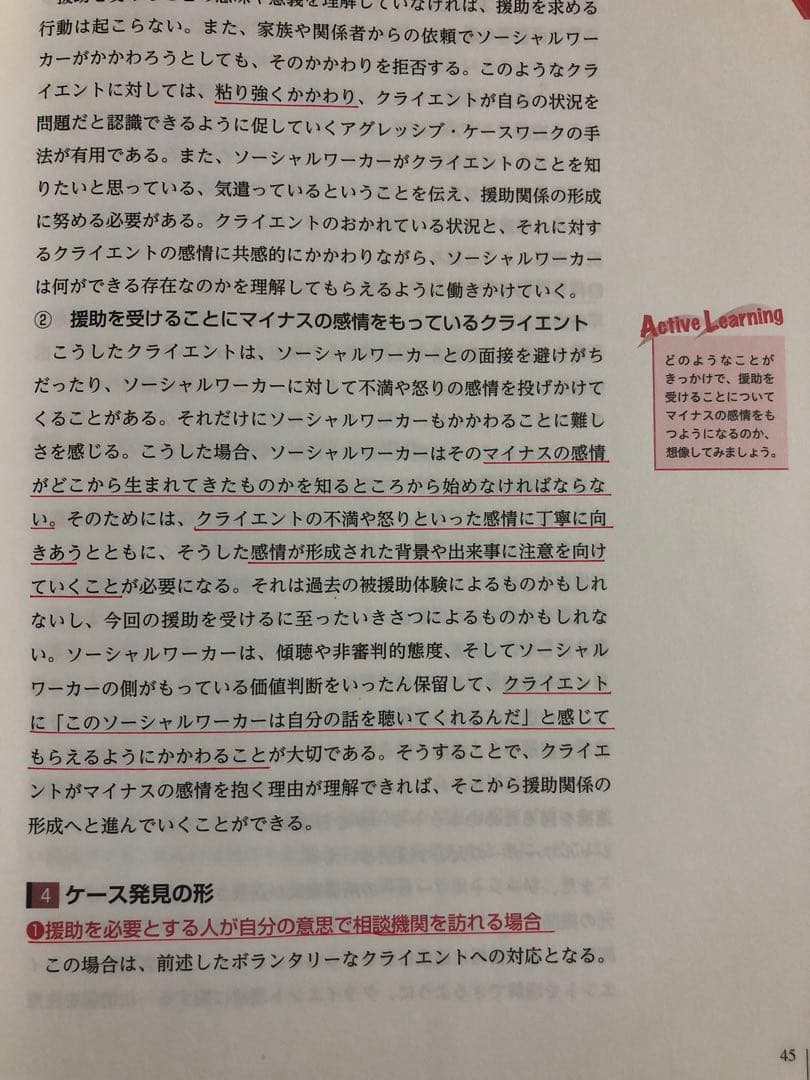 援助を受けることの意味や意義を理解していなければ、援助を求める
行動は起こらない。また、家族や関係者からの依頼でソーシャルワー
カーがかかわろうとしても、そのかかわりを拒否する。このようなクラ
イエントに対しては、粘り強くかかわり、クライエントが自らの状況を
問題だと認識できるように促していくアグレッシブ・ケースワークの手
法が有用である。また、ソーシャルワーカーがクライエントのことを知
りたいと思っている、気遣っているということを伝え、援助関係の形成
に努める必要がある。クライエントのおかれている状況と、それに対す
るクライエントの感情に共感的にかかわりながら、ソーシャルワーカー
は何ができる存在なのかを理解してもらえるように働きかけていく。
② 援助を受けることにマイナスの感情をもっているクライエント
こうしたクライエントは、ソーシャルワーカーとの面接を避けがち
だったり、ソーシャルワーカーに対して不満や怒りの感情を投げかけて
くることがある。それだけにソーシャルワーカーもかかわることに難し
さを感じる。こうした場合、ソーシャルワーカーはそのマイナスの感情
がどこから生まれてきたものかを知るところから始めなければならな
い。そのためには、クライエントの不満や怒りといった感情に丁寧に向
きあうとともに、そうした感情が形成された背景や出来事に注意を向け
ていくことが必要になる。それは過去の被援助体験によるものかもしれ
ないし、今回の援助を受けるに至ったいきさつによるものかもしれな
い。ソーシャルワーカーは、傾聴や非審判的態度、そしてソーシャル
ワーカーの側がもっている価値判断をいったん保留して、クライエント
に「このソーシャルワーカーは自分の話を聴いてくれるんだ」と感じて
もらえるようにかかわることが大切である。そうすることで、クライエ
ントがマイナスの感情を抱く理由が理解できれば、そこから援助関係の
形成へと進んでいくことができる。
4 ケース発見の形
❶援助を必要とする人が自分の意思で相談機関を訪れる場合
この場合は、前述したボランタリーなクライエントへの対応となる。
Active Learning
どのようなことが
きっかけで、援助を
受けることについて
マイナスの感情をも
つようになるのか、
想像してみましょう。
45